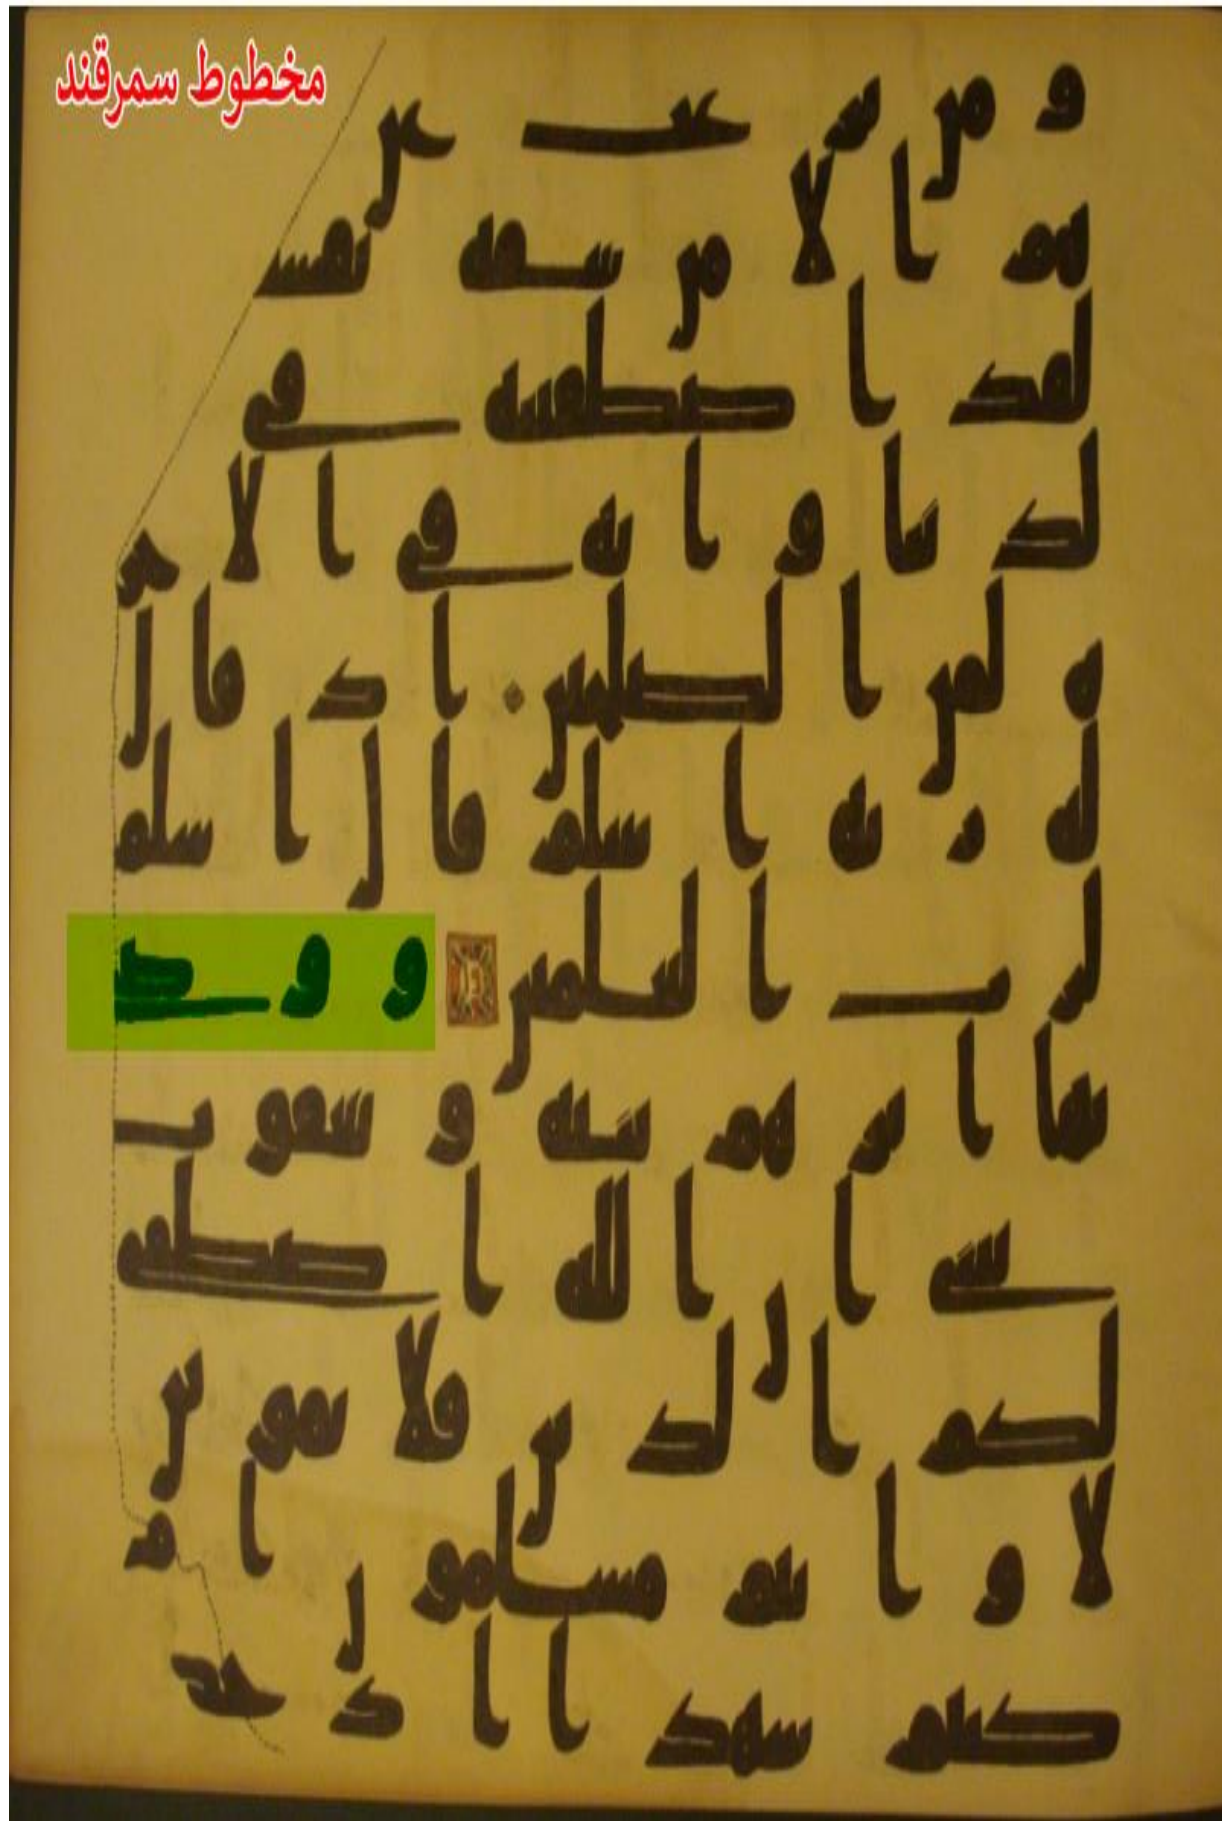 مخطوط سمرقند
و من ير غب عن
هم ا لا من سفه نفسه
لقد ا صطفينه في
لد نيا و ا نه في ا لا خر
ه لمن ا لصلحين ا ذ قال
له ر به ا سلم قال ا سلمـ
لر ب ا لعلمين و و صى
بها ا بر هم بنيه و يعقوب
يبني ا ن ا لله ا صطفى
لكم ا لد ين فلا تموتن
لا و ا نتم مسلمون ا م
كنتم شهد ا ا ذ حضر